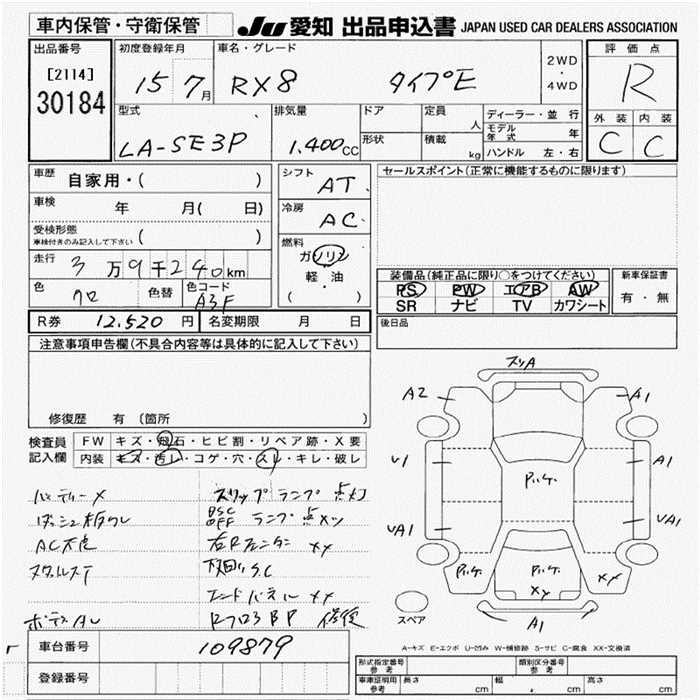 車内保管・守衛保管
JU 愛知 出品申込書 JAPAN USED CAR DEALERS ASSOCIATION
出品番号
[2114]
30184
初度登録年月
15 7月
車名・グレード
RX8 タイプE
2WD
・
4WD
評価点
R
外装 内装
C C
型式
LA-SE3P
排気量
1.400cc
ドア
形状
定員 人
積載 kg
ディーラー・並行
モデル年式 年
ハンドル 左・右
車歴 自家用・( )
車検 年 月( 日)
受検形態
車検付きのみ記入して下さい ( )
走行 3万9千240km
色 クロ 色替 色コード A3F
シフト AT
冷房 AC
燃料
ガソリン
・
軽・油
( )
セールスポイント(正常に機能するものに限ります)
装備品(純正品に限り○をつけてください)
PS PW エアB AW
SR ナビ TV カワシート
新車保証書
有・無
後日品
R券 12.520円 名変期限 月 日
注意事項申告欄(不具合内容等は具体的に記入して下さい)
修復歴 有(箇所 )
検査員記入欄
FW キズ・飛石・ヒビ割・リペア跡・X要
内装 キズ・汚レ・コゲ・穴・スレ・キレ・破レ
スリップランプ点灯
DSC OFF ランプ点メツ
AC不良 右Rフェンダー XX
下回り S.C
エンドパネル XX
修復
スリA
A2 A1
U1 A1
UA1 UA1
Pいた.
Pいた. Pいた. XX
XY
A1
スペア
A-キズ E-エクボ U-凹み W-補修跡 S-サビ C-腐食 XX-交換済
車台番号 109879
登録番号
形式指定番号 参考 類別区分番号 参考
車庫証明用 参考 長さ cm 幅 cm 高さ cm